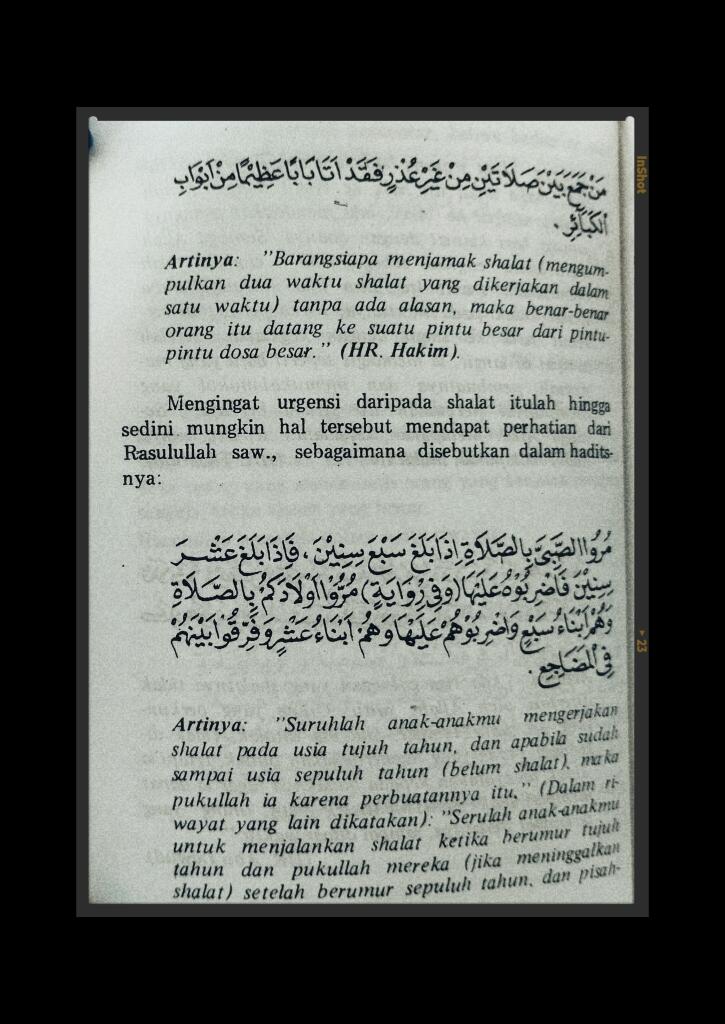 مَنْ جَمَعَ بَيْنَ صَلَاتَيْنِ مِنْ غَيْرِ عُذْرٍ فَقَدْ اَتَا بَابًا عَظِيْمًا مِنْ اَبْوَابِ
الْكَبَآئِرِ .
Artinya: ”Barangsiapa menjamak shalat (mengum-
pulkan dua waktu shalat yang dikerjakan dalam
satu waktu) tanpa ada alasan, maka benar-benar
orang itu datang ke suatu pintu besar dari pintu-
pintu dosa besar.” (HR. Hakim).
Mengingat urgensi daripada shalat itulah hingga
sedini mungkin hal tersebut mendapat perhatian dari
Rasulullah saw., sebagaimana disebutkan dalam hadits-
nya:
مُرُوا الصَّبِيَّ بِالصَّلَاةِ اِذَا بَلَغَ سَبْعَ سِنِيْنَ ، فَاِذَا بَلَغَ عَشْرَ
سِنِيْنَ فَاضْرِبُوْهُ عَلَيْهَا (وَفِيْ رِوَايَةٍ) مُرُّوْا اَوْلَادَكُمْ بِالصَّلَاةِ
وَهُمْ اَبْنَاءُ سَبْعٍ وَاضْرِبُوْهُمْ عَلَيْهَا وَهُمْ اَبْنَاءُ عَشْرٍ وَفَرِّقُوْا بَيْنَهُمْ
فِي الْمَضَاجِعِ .
Artinya: ”Suruhlah anak-anakmu mengerjakan
shalat pada usia tujuh tahun, dan apabila sudah
sampai usia sepuluh tahun (belum shalat), maka
pukullah ia karena perbuatannya itu.” (Dalam ri-
wayat yang lain dikatakan): ”Serulah anak-anakmu
untuk menjalankan shalat ketika berumur tujuh
tahun dan pukullah mereka (jika meninggalkan
shalat) setelah berumur sepuluh tahun, dan pisah-
InShot
▸ 23